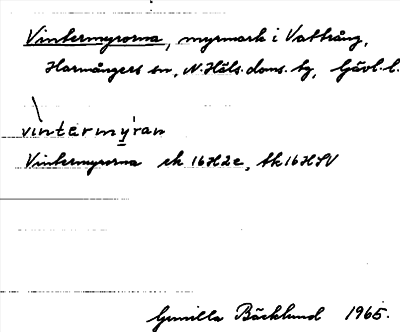 Vintermyrorna, myrmark i Vattrång,
Harmångers sn, N. Häls. doms. tg, Gävl. l.
vintermy̱ran
Vintermyrorna ek 16H2c, tk 16HSV
Gunilla Bäcklund 1965.